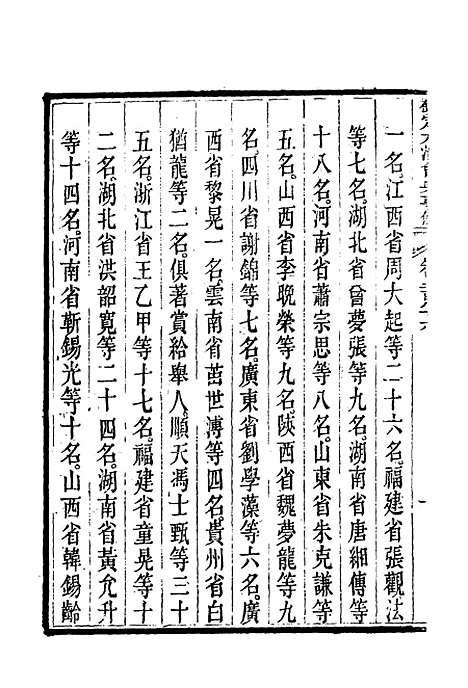 一名江西省周大起等二十六名福建省張觀法
等七名湖北省曾夢張等九名湖南省唐緗傳等
十八名河南省蕭宗思等八名山東省朱克謙等
五名山西省李晩榮等九名陝西省魏夢龍等九
名四川省謝錦等七名廣東省劉學藻等六名廣
西省黎晃一名雲南省茁世溥等四名貴州省白
猶龍等二名俱著賞給舉人順天馮士甄等三十
五名浙江省王乙甲等十七名福建省童晃等十
二名湖北省洪韶寬等二十四名湖南省黃允升
等十四名河南省靳錫光等十名山西省韓錫齡